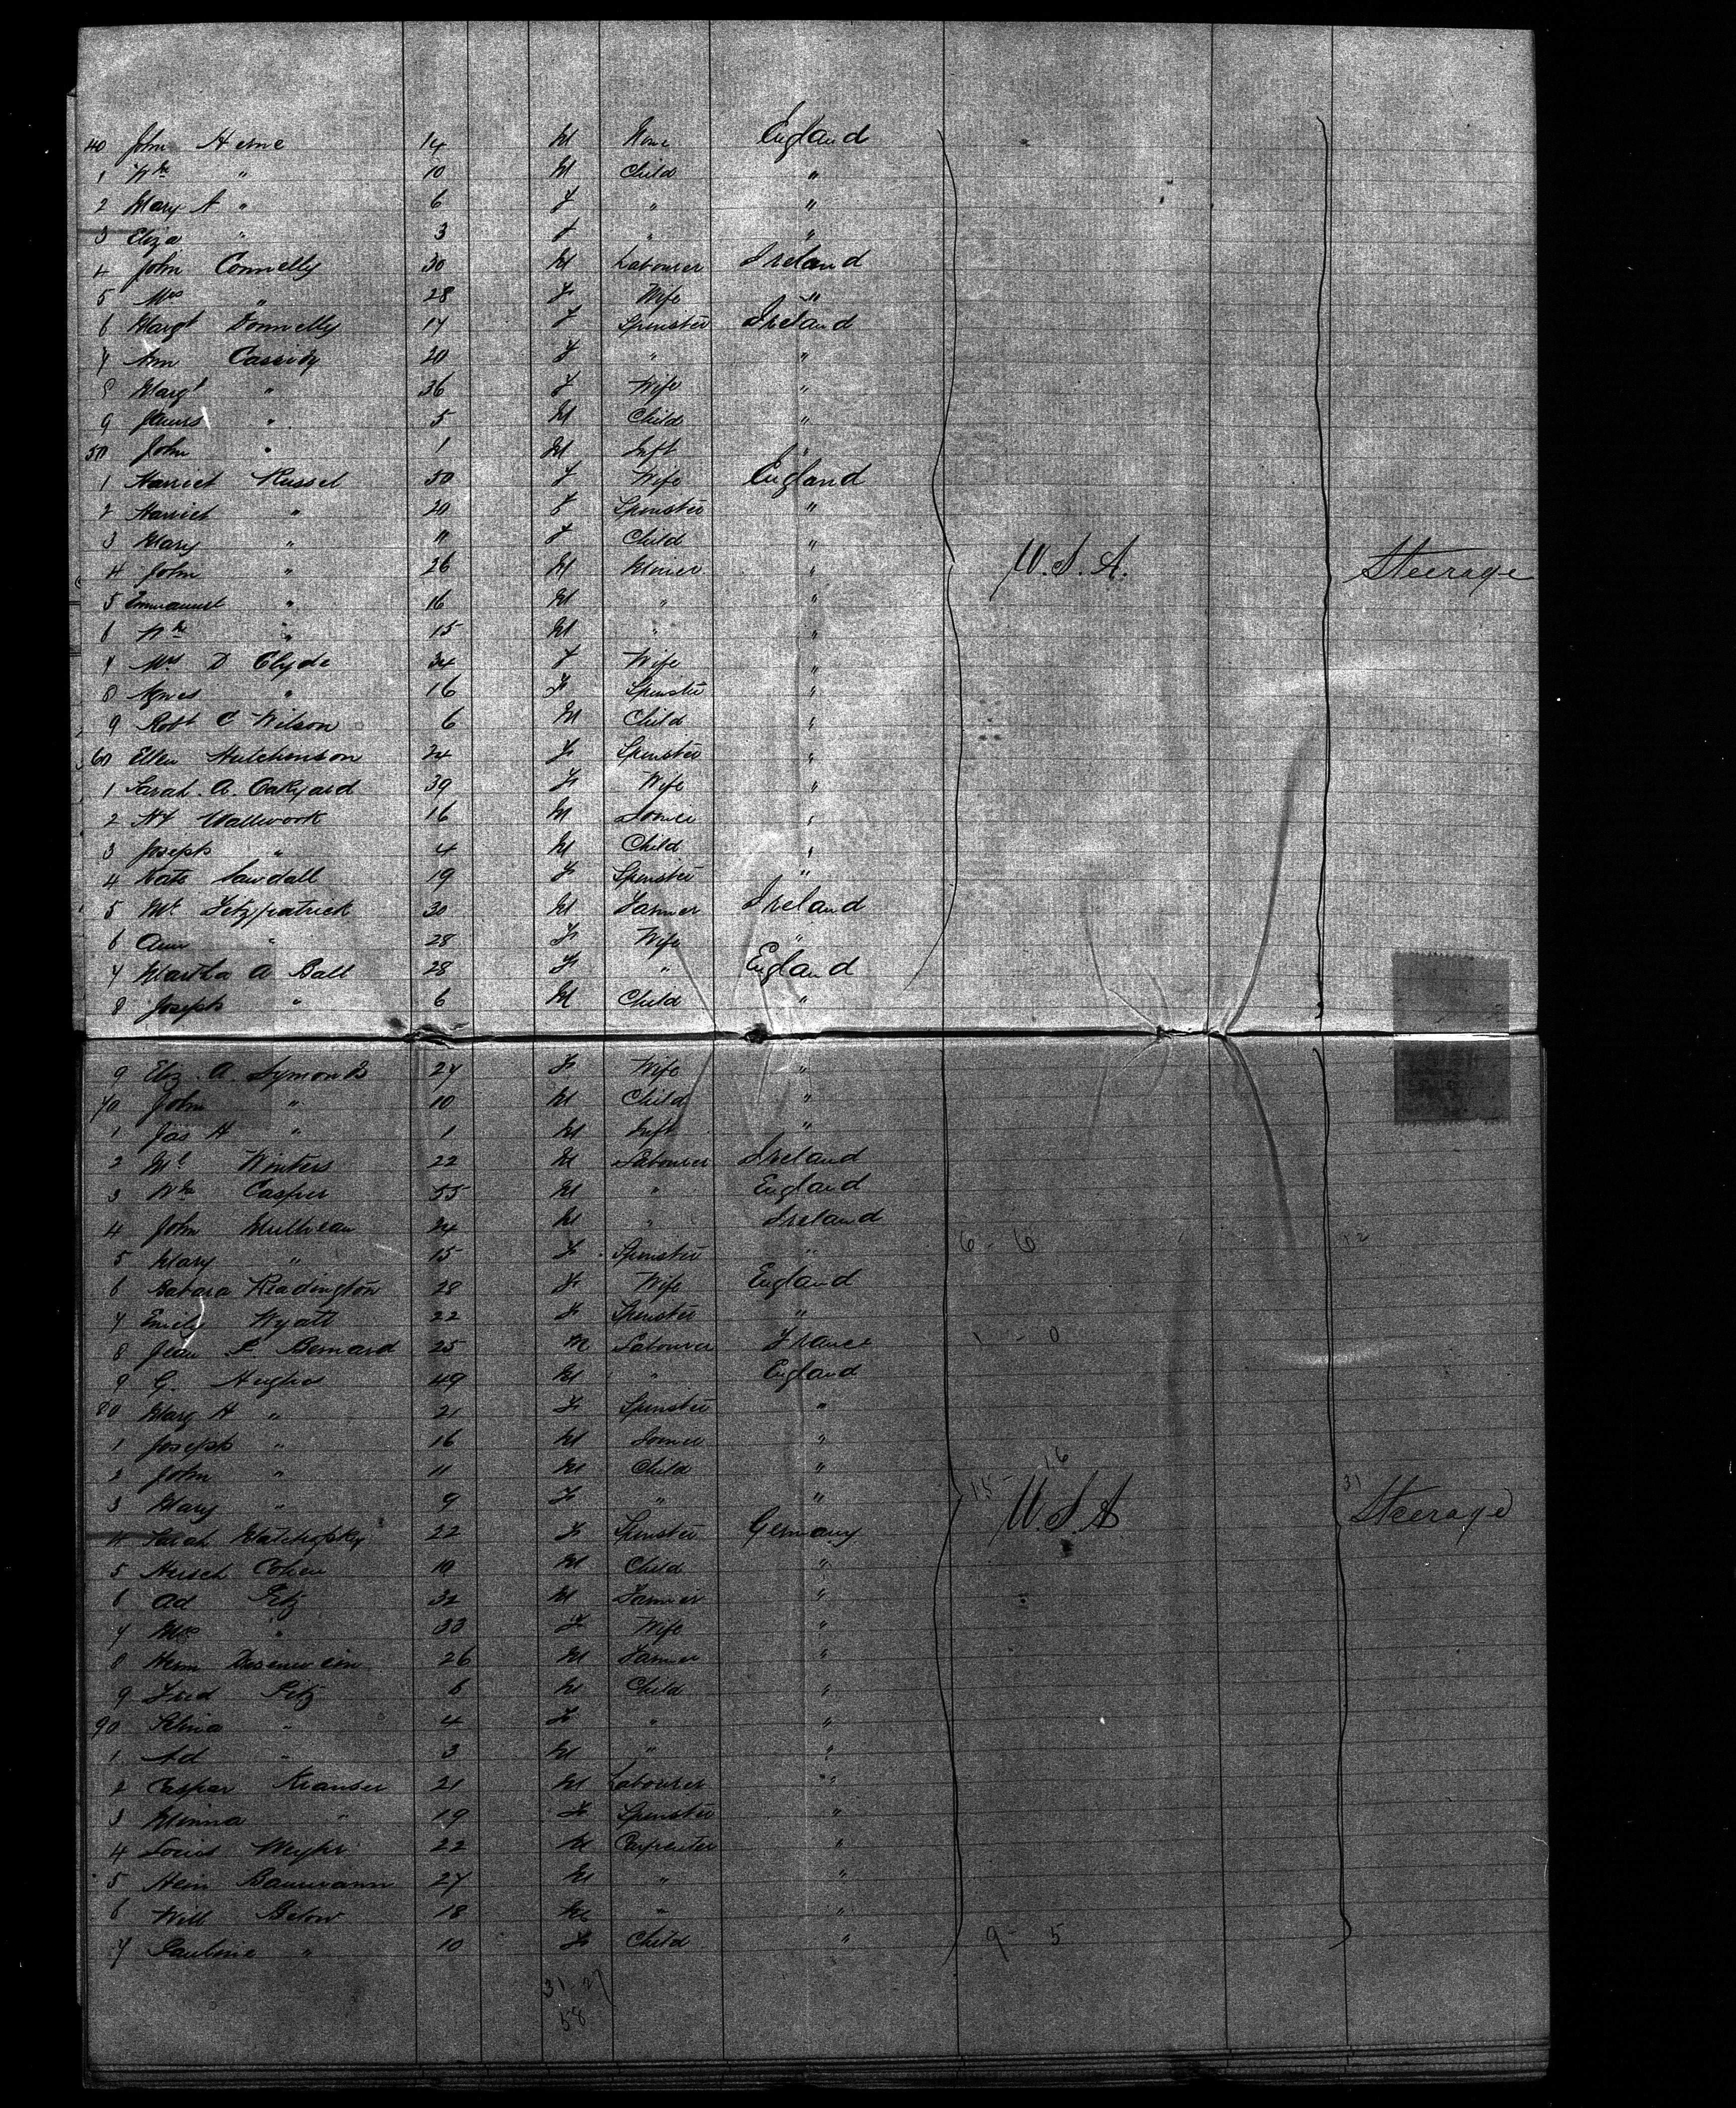 40 John Herne 14 M None England
1 Wm " 10 M Child "
2 Mary A " 6 F " "
3 Eliza " 3 F " "
4 John Connelly 30 M Labourer Ireland
5 Mrs " 28 F Wife "
6 Margt Donnelly 17 F Spinster Ireland
7 Ann Cassidy 20 F " "
8 Margt " 36 F Wife "
9 James " 5 M Child "
50 John " 1 M Inft "
1 Harriet Russel 50 F Wife England
2 Harriet " 20 F Spinster "
3 Mary " 11 F Child "
4 John " 26 M Miner " U.S.A. Steerage
5 Emmanuel " 16 M " "
6 Wm " 15 M " "
7 Mrs D Clyde 34 F Wife "
8 Agnes " 16 F Spinster "
9 Robt C Wilson 6 M Child "
60 Ellen Hutchinson 24 F Spinster "
1 Sarah A. Oakyard 39 F Wife "
2 Hy Wallwork 16 M "
3 Joseph " 4 M Child "
4 Kate Sawdall 19 F Spinster "
5 Ml Fitzpatrick 30 M Farmer Ireland
6 Ann " 28 F Wife "
7 Martha A Ball 28 F " England
8 Joseph " 6 M Child "
9 Eliz. A. Symonds 27 F Wife "
70 John " 10 M Child "
1 Jas H " 1 M Inft "
2 Ml Winters 22 M Labourer Ireland
3 Wm Casper 55 M " England
4 John 24 M " Ireland
5 Mary " 15 F Spinster " 6 - 6 12
6 Babara Readington 28 F Wife England
7 Emily Wyatt 22 F Spinster "
8 Jean P Bernard 25 M Labourer France 1 - 0
9 G. Hughes 49 M " England
80 Mary H " 21 F Spinster "
1 Joseph " 16 M "
2 John " 11 M Child "
3 Mary " 9 F " " 15 - 16 U.S.A. 31 Steerage
4 Sarah 22 F Spinster Germany
5 Hersch Cohen 10 M Child "
6 Ad Fitz 32 M Farmer "
7 Mrs " 33 F Wife "
8 Herm 26 M Farmer "
9 Fred Fitz 6 M Child "
90 Selina " 4 F " "
1 Ad " 3 M " "
2 Caspar Krauser 21 M Labourer "
3 Minna " 19 F Spinster "
4 Louis 22 M Carpenter "
5 Hein Baumann 27 M " "
6 Will Below 18 M " "
7 Pauline " 10 F Child " 9 - 5
31 - 27
58